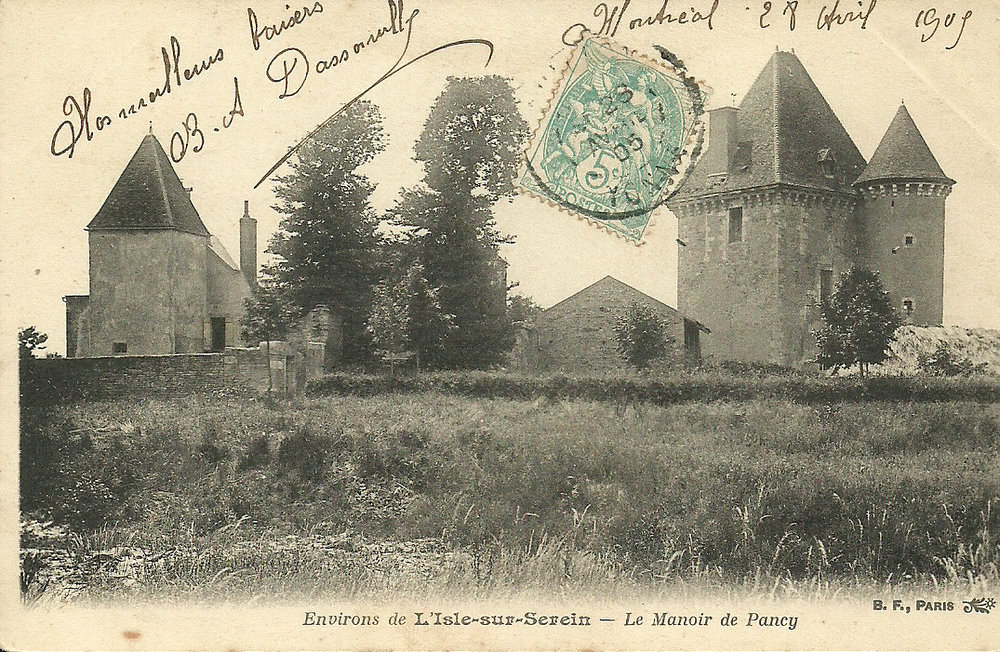 Nos meilleurs baisers
B. A Dassonville
Montréal 28 Avril 1905
28
AVRIL
05
YONNE
5
POSTES
Environs de L'Isle-sur-Serein — Le Manoir de Pancy
B. F., PARIS